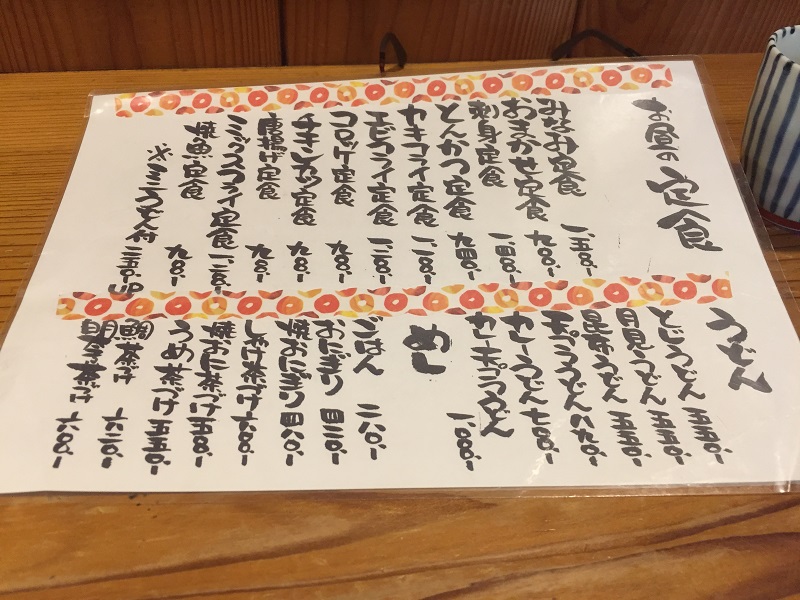 お昼の定食
みなみ定食 一、五八〇-
おまかせ定食 九八〇-
刺身定食
とんかつ定食
カキフライ定食 一、二八〇-
エビフライ定食 一、二八〇-
コロッケ定食 九八〇-
チキンカツ定食 九八〇-
唐揚げ定食 九八〇-
ミックスフライ定食 一、二八〇-
焼魚定食 九八〇-
※ミニうどん付 二五〇UP
うどん
とじうどん 五五〇-
月見うどん 五五〇-
昆布うどん 五五〇-
天プラうどん 八九〇-
カレーうどん 七八〇-
カレー天プラうどん 一、〇八〇-
めし
ごはん 二八〇-
おにぎり 四二〇-
焼おにぎり 四八〇-
しゃけ茶づけ 六八〇-
焼おに茶づけ 五八〇-
うめ茶づけ 五五〇-
鯛茶づけ 六二〇-
明太茶づけ 六八〇-